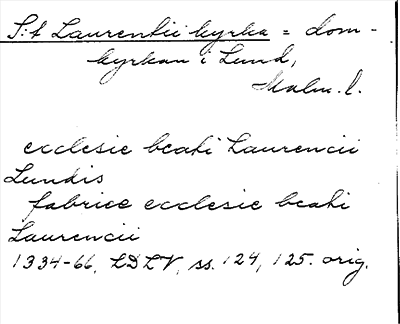 S:t Laurentii kyrka = dom-
kyrkan i Lund,
Malm. l.
ecclesie beati Laurencii
Lundis
fabrice ecclesie beati
Laurencii
1334-66, LDLV, ss. 124, 125. orig.